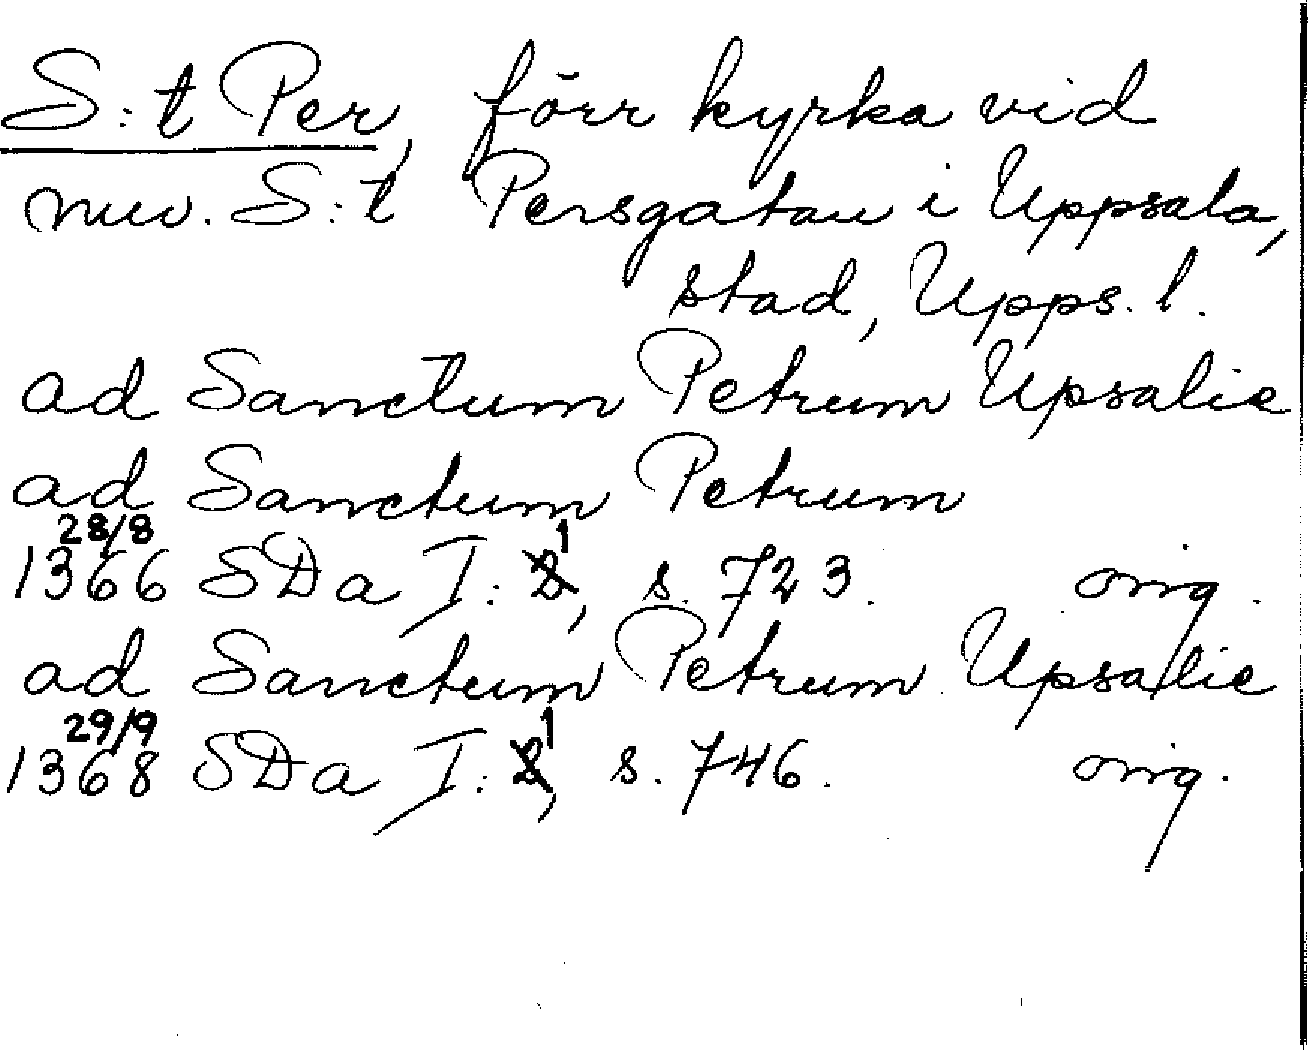 S:t Per, förr kyrka vid
nuv. S:t Persgatan i Uppsala,
stad, Upps. l.
ad Sanctum Petrum Upsalie
ad Sanctum Petrum
28/8
1366 SDa I: 1, s. 723. orig.
ad Sanctum Petrum Upsalie
29/9
1368 SDa I: 1, s. 746. orig.